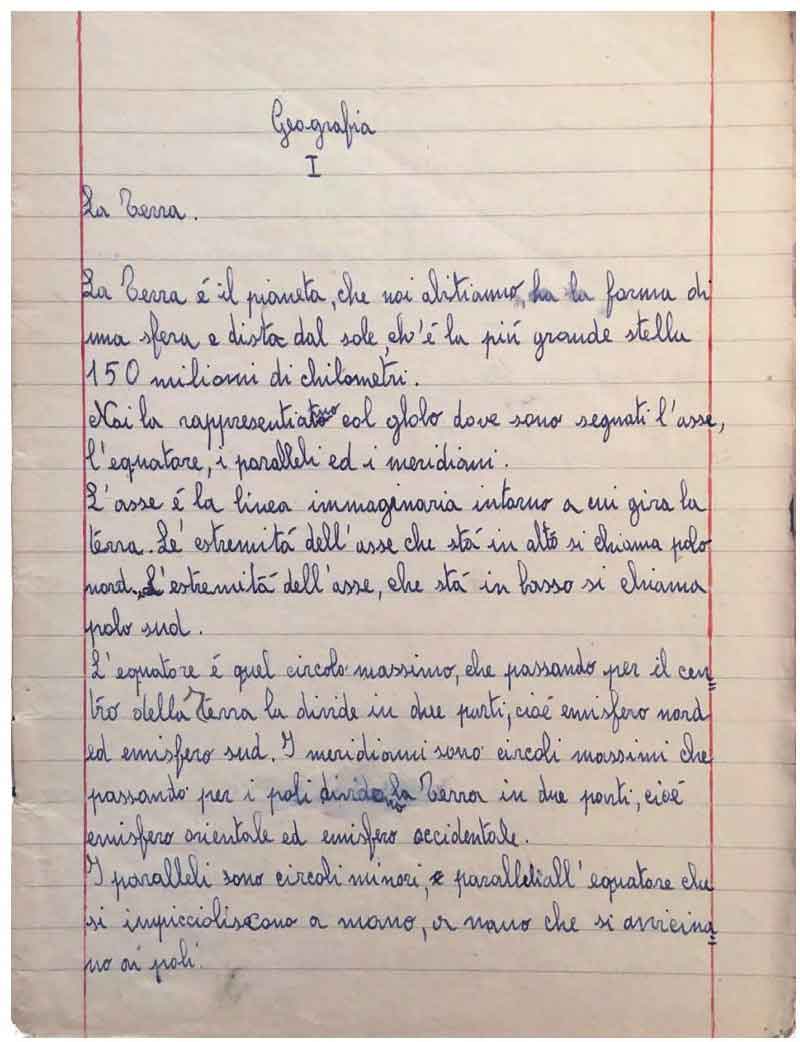 Geografia
I
La Terra.
La Terra é il pianeta, che noi abitiamo, ha la forma di
una sfera e dista dal sole, ch'é la piú grande stella
150 milioni di chilometri.
Noi la rappresentiamo col globo dove sono segnati l'asse,
l'equatore, i paralleli ed i meridiani.
L'asse é la linea immaginaria intorno a cui gira la
terra. Le' estremitá dell'asse che stá in alto si chiama polo
nord. L'estremitá dell'asse, che stá in basso si chiama
polo sud.
L'equatore é quel circolo massimo, che passando per il cen=
tro della Terra la divide in due parti, cioé emisfero nord
ed emisfero sud. I meridiani sono circoli massimi che
passando per i poli dividono la Terra in due parti, cioé
emisfero orientale ed emisfero occidentale.
I paralleli sono circoli minori, e paralleli all'equatore che
si impiccioliscono a mano, a mano che si avvicina=
no ai poli.